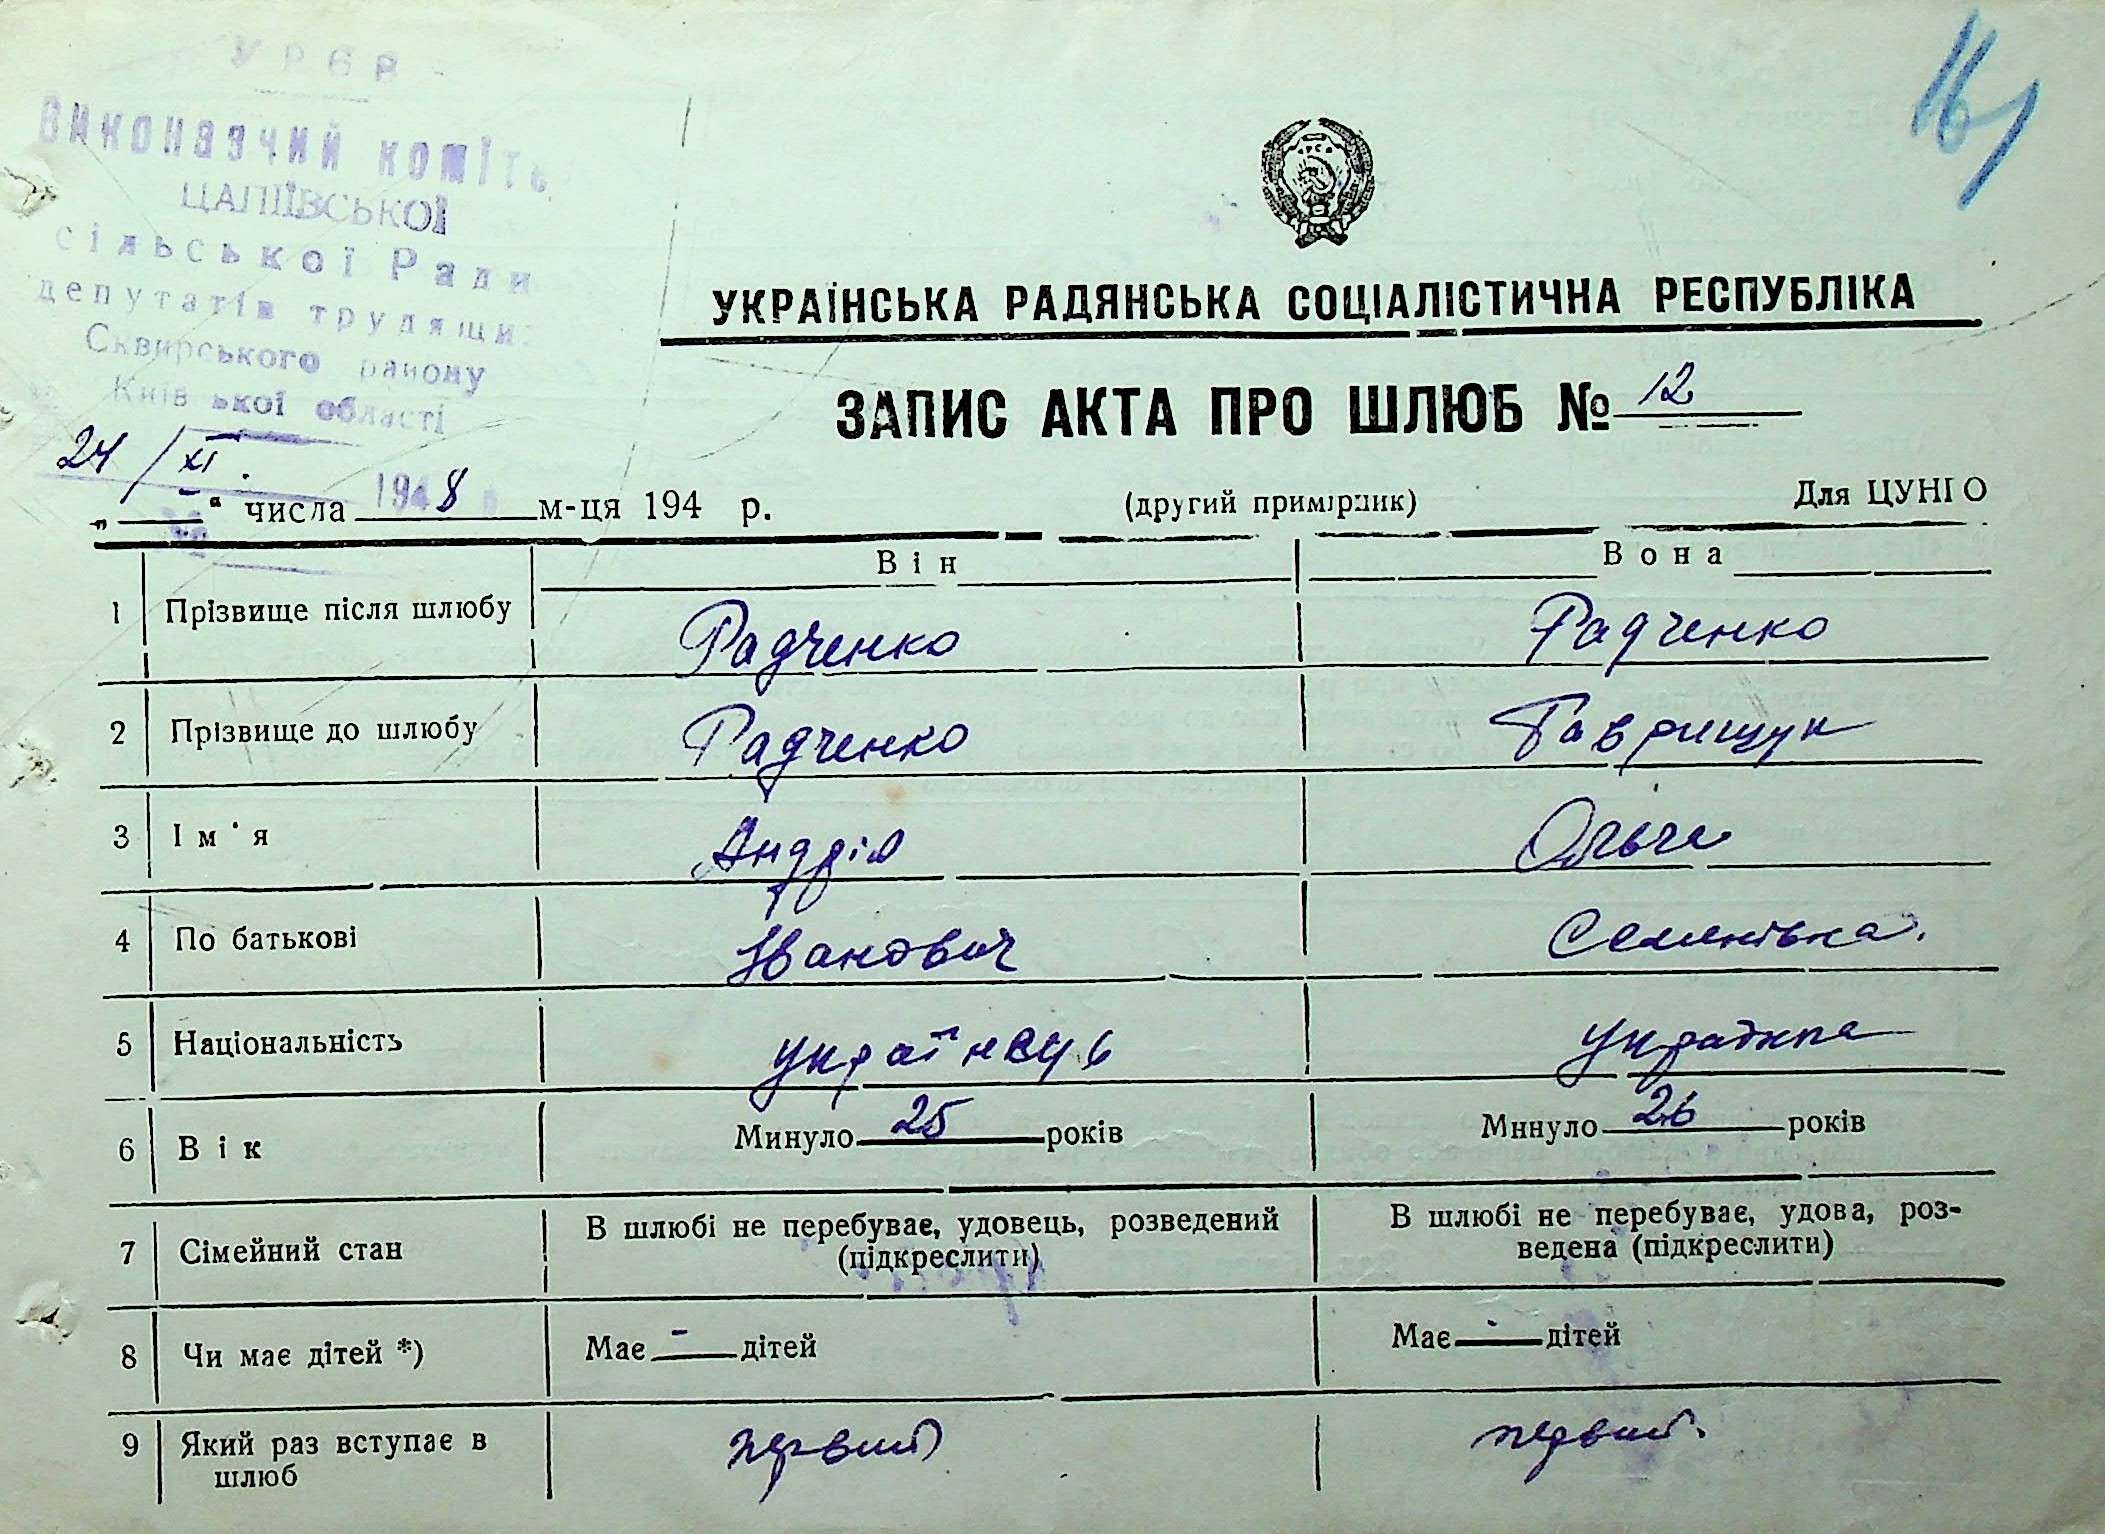 УРСР
Виконавчий коміте
ЦАПІЇВСЬКОЇ
сільської Ради
депутатів трудящих
Сквирського району
Київської області
24/XI. 1948
161
УРСР
УКРАЇНСЬКА РАДЯНСЬКА СОЦІАЛІСТИЧНА РЕСПУБЛІКА
ЗАПИС АКТА ПРО ШЛЮБ № 12
„ “ числа м-ця 194 р. (другий примірник) Для ЦУНГО
Він Вона
1 Прізвище після шлюбу Радченко Радченко
2 Прізвище до шлюбу Радченко Гаврищук
3 Ім'я Андрій Ольга
4 По батькові Іванович Семенівна.
5 Національність українець українка
6 Вік Минуло 25 років Минуло 26 років
7 Сімейний стан В шлюбі не перебуває, удовець, розведений (підкреслити) В шлюбі не перебуває, удова, роз-
ведена (підкреслити)
8 Чи має дітей *) Має - дітей Має - дітей
9 Який раз вступає в первий первий.
шлюб